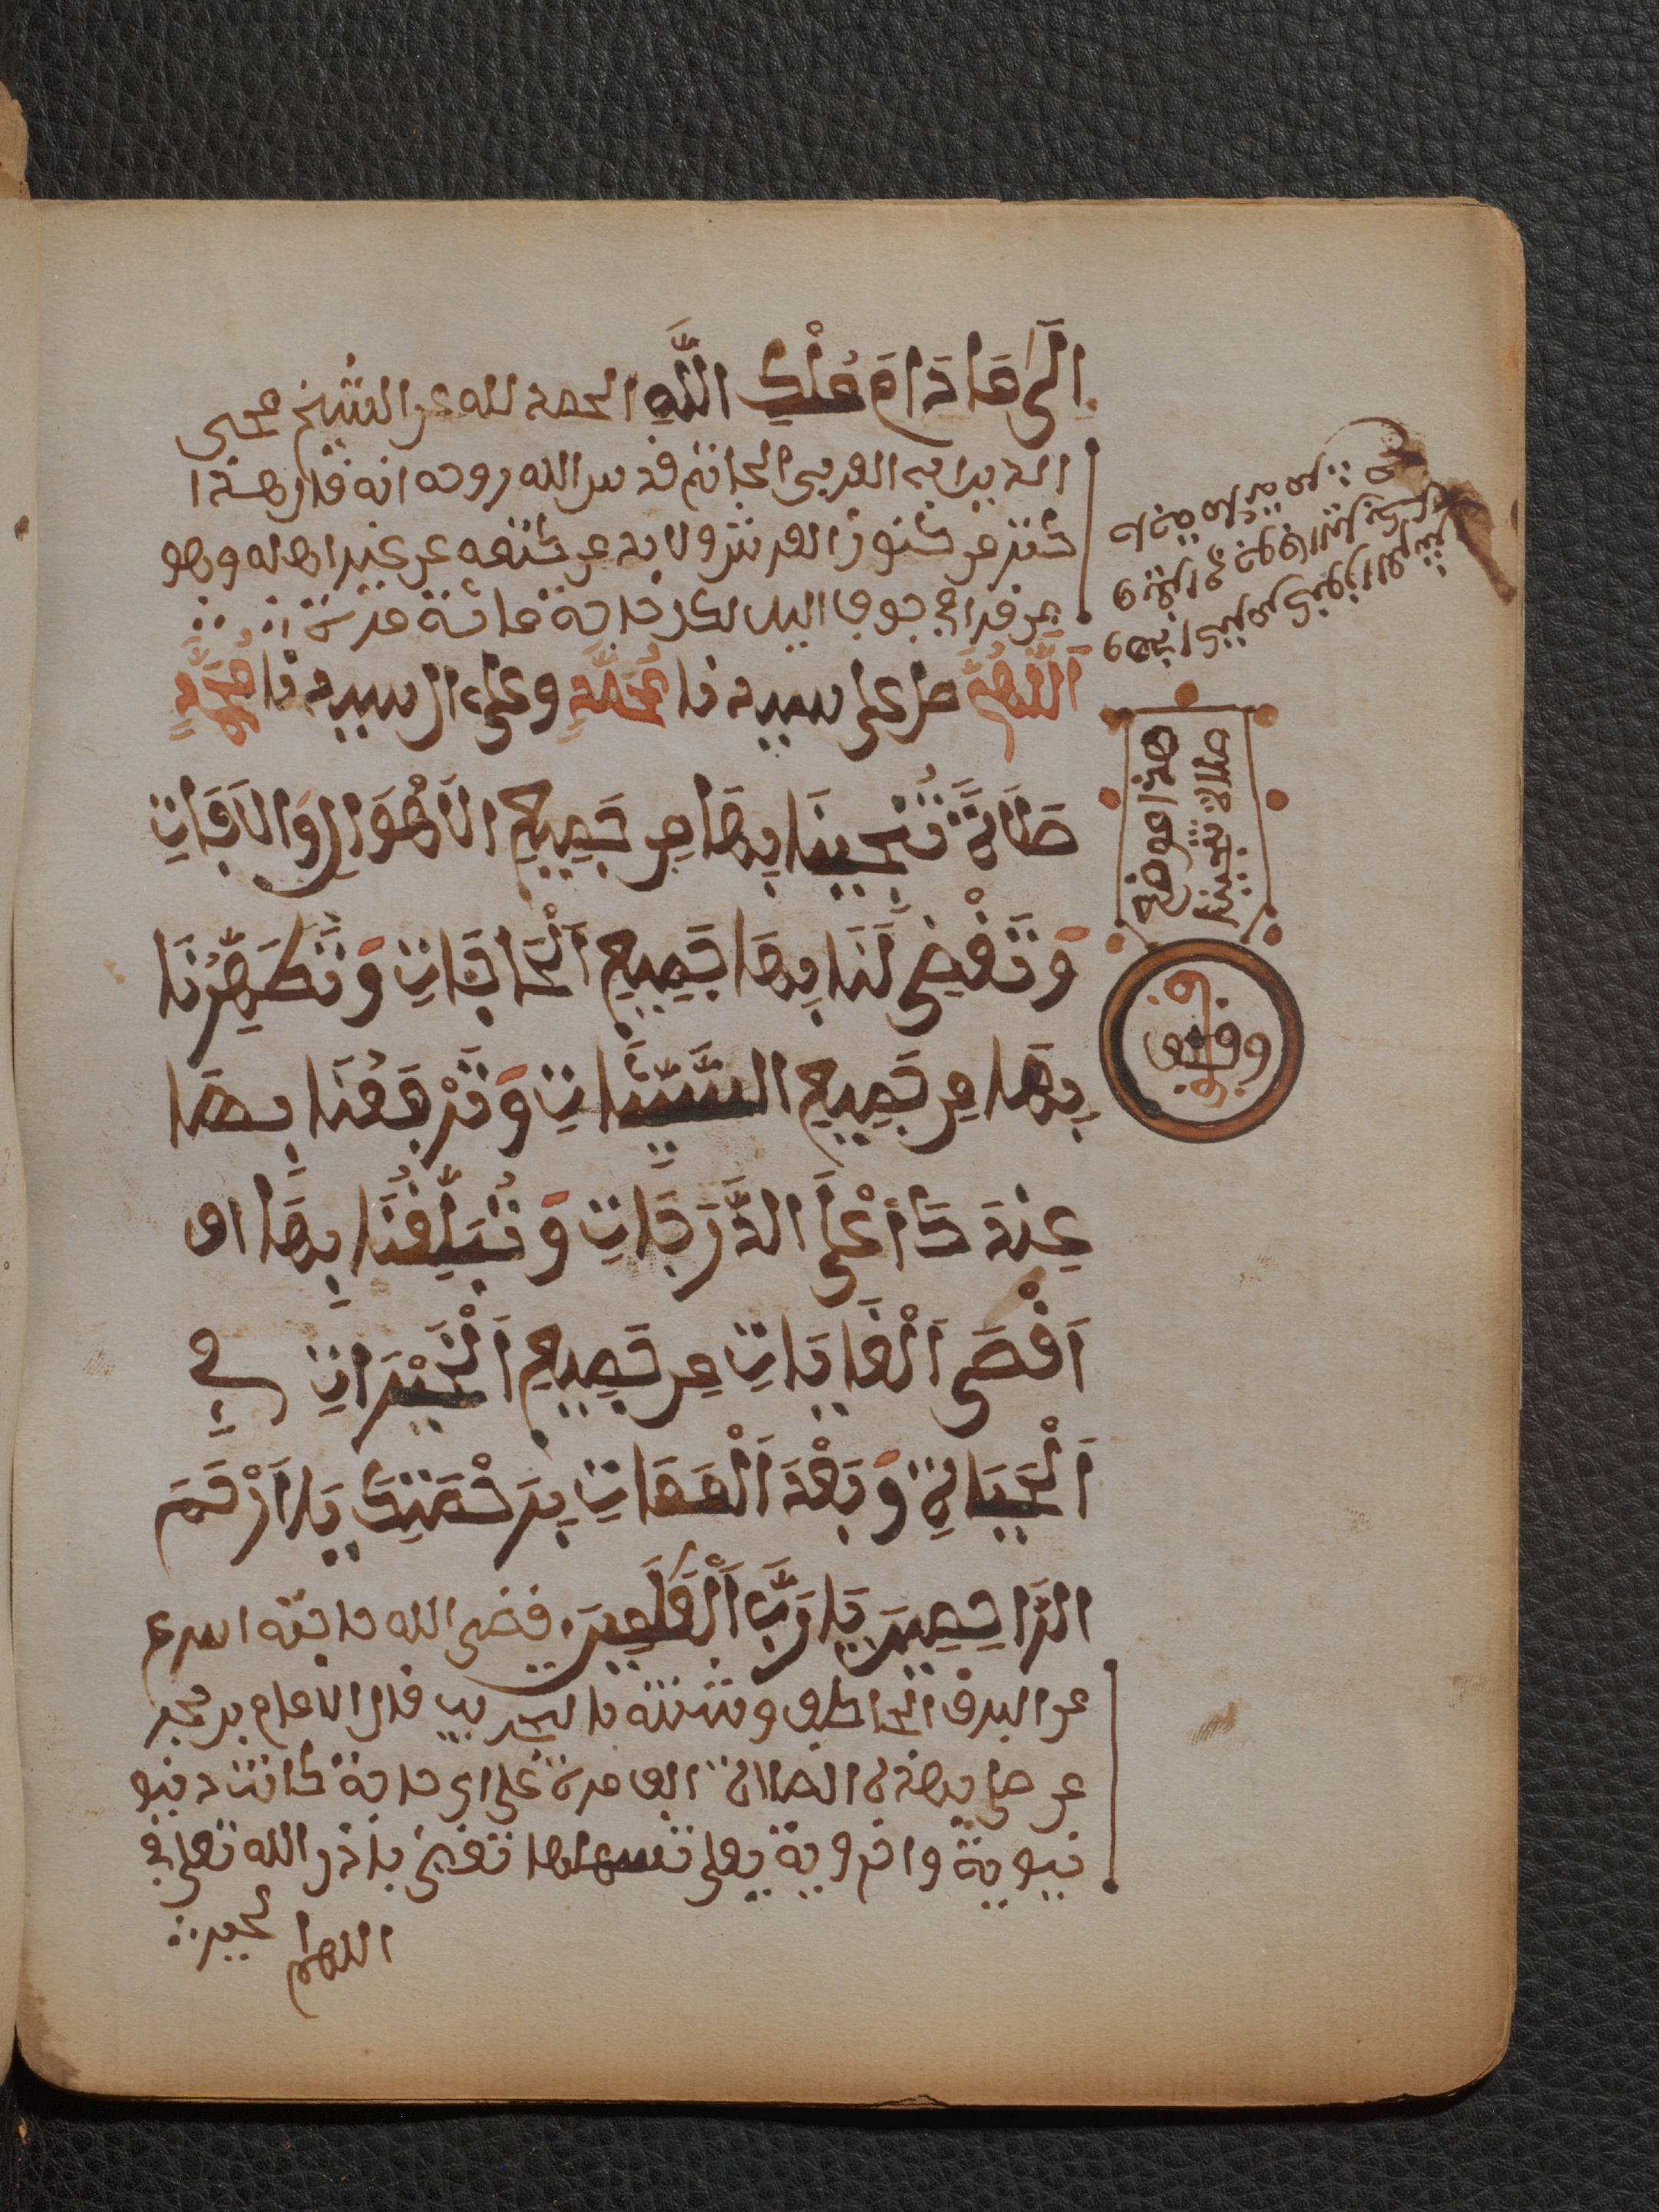 اِلَىٰ مَا دَامَ مُلْكُ اللَّهِ الحمد لله عن الشيخ محيى
الدين ابن العربى الحاتم قدس الله روحه انه قال هذا
كنز من كنوز العرش ولا بد من كتمه عن غير اهله وهو
من قرا فى جوف اليل لكل حاجة مائة مرة
اَللَّهُمَّ صل على سيدنا مُحَمَّدٍ وعلى ال سيدنا مُحَمَّدٍ
صَلَاةً تُنْجِينَا بِهَا مِن جَمِيعِ الَاهْوَالِ وَالَافَاتِ
وَتَقْضِى لَنَا بِهَا جَمِيعِ اَلْحَاجَاتِ وَتُطَهِّرُنَا
بِهَا مِن جَمِيعِ السَّيِّئَاتِ وَتَرْفَعُنَا بِهَا
عِندَكَ أَعْلَى الدَّرَجَاتِ وَتُبَلِّغُنَا بِهَا
اَقْصَى اَلْغَايَاتِ مِن جَمِيعِ اَلْخَيْرَاتِ فِى
اَلْحَيَاةِ وَبَعْدَ اَلْمَمَاتِ بِرَحْمَتِكَ يَا اَرْحَمَ
الرَّاحِمِينَ يَا رَبَّ اَلْعَٰلَمِينَ قضى الله حاجته اسرع
من البرق الخاطف وشئته بالتجريب قال الامام بن محمد
من صلى بهذه الصلاة الف مرة على اى حاجة كانت دنيو
نيوية واخروية يعلى تسهلها تقضى باذن الله تعلى فى
الحين
اللهم
هذا عوضه
صلاة تنجينا
وقف